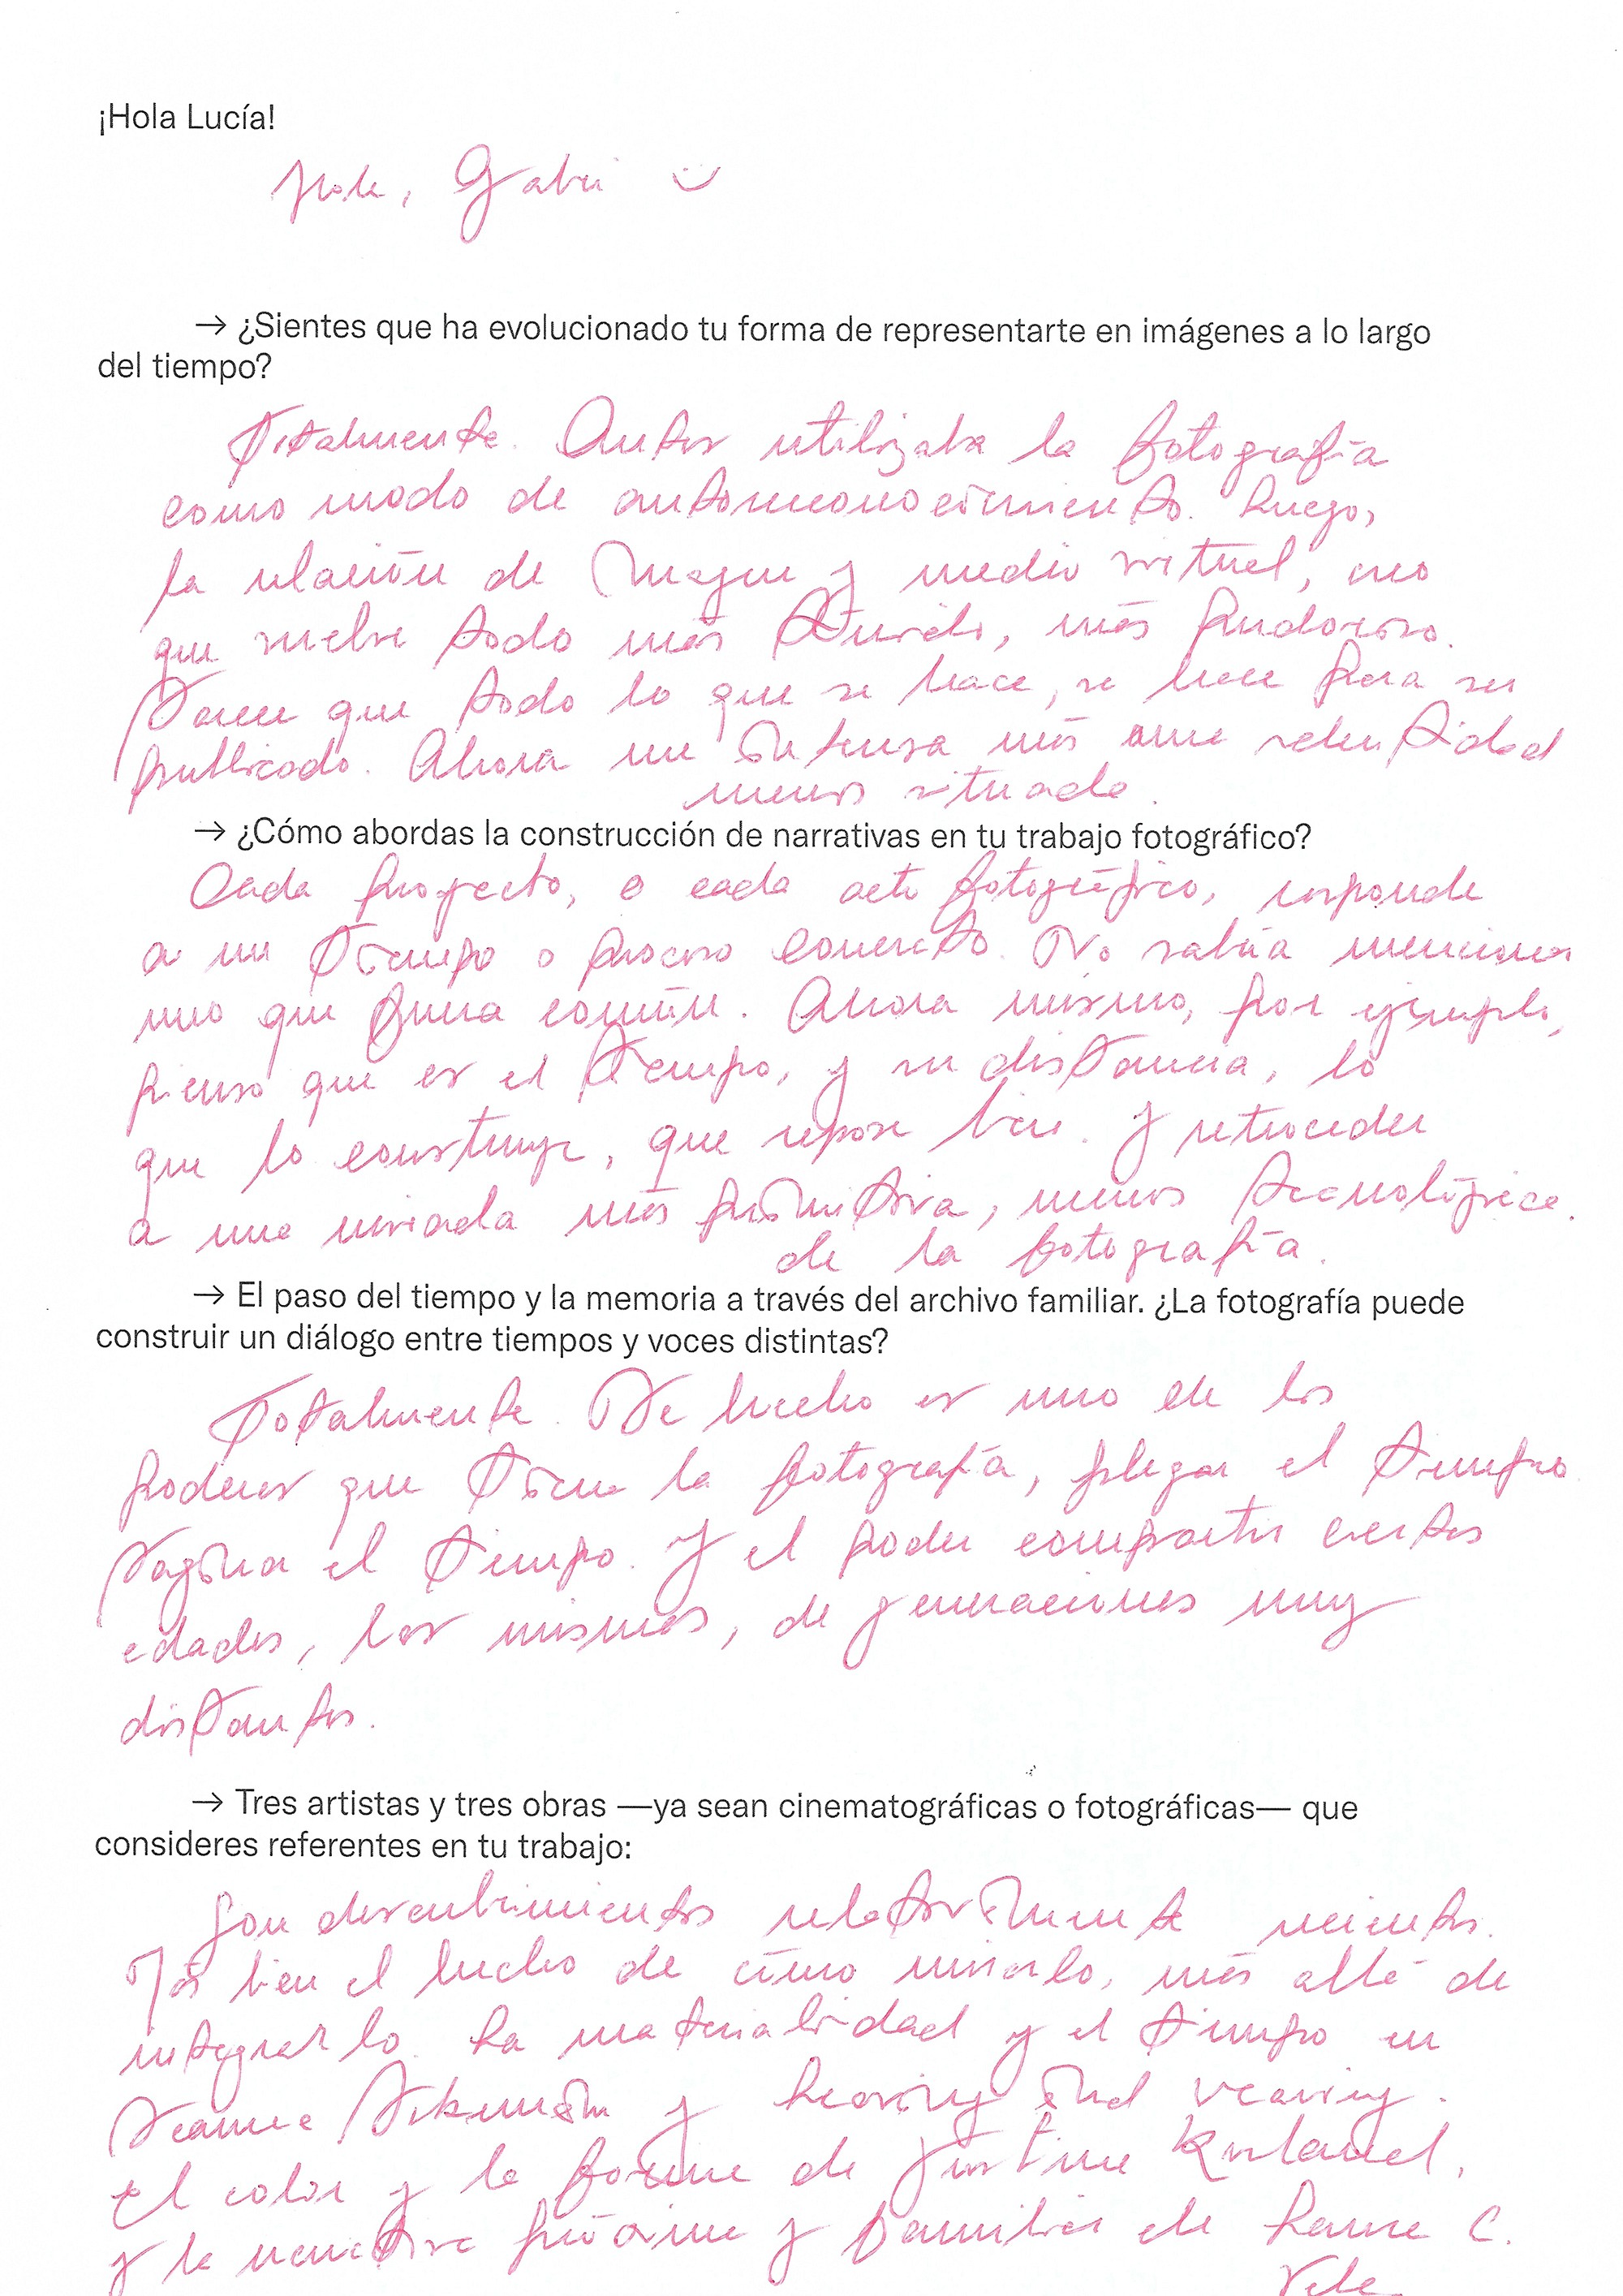 ¡Hola Lucía!
Hola, Gabri
→ ¿Sientes que ha evolucionado tu forma de representarte en imágenes a lo largo
del tiempo?
Totalmente. Antes utilizaba la fotografía
como modo de autorreconocimiento. Luego,
la relación de imagen y medio virtual, creo
que vuelve todo más tímido, más pudoroso.
Parece que todo lo que se hace, se hace para ser
publicado. Ahora me interesa más una identidad
menos situada.
→ ¿Cómo abordas la construcción de narrativas en tu trabajo fotográfico?
Cada proyecto, o cada acto fotográfico, responde
a un tiempo o proceso concreto. No sabría mencionar
uno que fuera común. Ahora mismo, por ejemplo,
pienso que es el tiempo, y su distancia, lo
que lo construye, que repose bien. Y retroceder
a una mirada más primitiva, menos tecnológica.
de la fotografía.
→ El paso del tiempo y la memoria a través del archivo familiar. ¿La fotografía puede
construir un diálogo entre tiempos y voces distintas?
Totalmente. De hecho es uno de los
poderes que tiene la fotografía, plegar el tiempo
el tiempo. Y el poder compartir ciertas
edades, las mismas, de generaciones muy
distantes.
→ Tres artistas y tres obras —ya sean cinematográficas o fotográficas— que
consideres referentes en tu trabajo:
Son descubrimientos relativamente recientes.
Más bien el hecho de cómo mirarlo, más allá de
integrarlo. La materialidad y el tiempo en
Jeanne Dielman y
el color y la forma de Justine Kurland,
y la narrativa próxima y familiar de C.